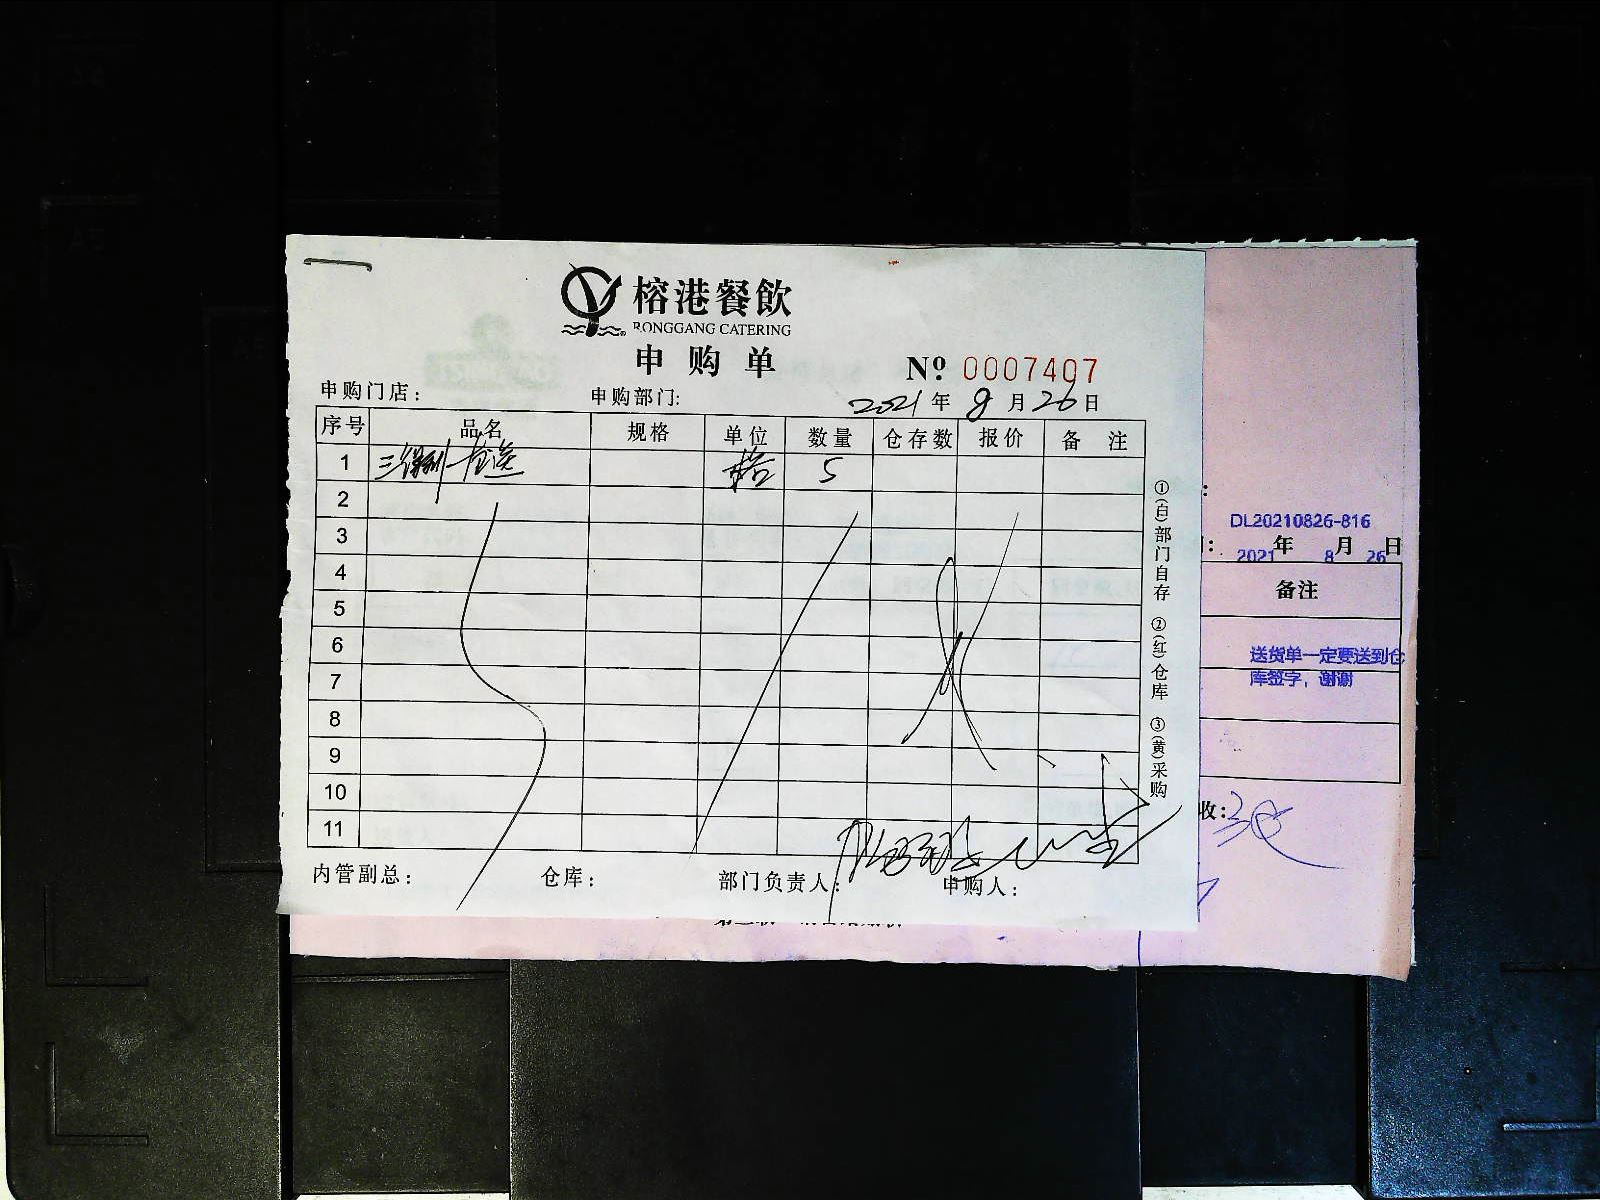 榕港餐飲
RONGGANG CATERING
申购单
Nº 0007407
申购门店：
申购部门:
2021年8月26日
序号 品名 规格 单位 数量 仓存数 报价 备注
1 5
2
3
4
5
6
7
8
9
10
11
内管副总：
仓库：
部门负责人：
申购人：
①(白)部门自存 ②(红)仓库 ③(黄)采购
DL20210826-816
2021年8月26日
备注
送货单一定要送到仓
库签字，谢谢
收: